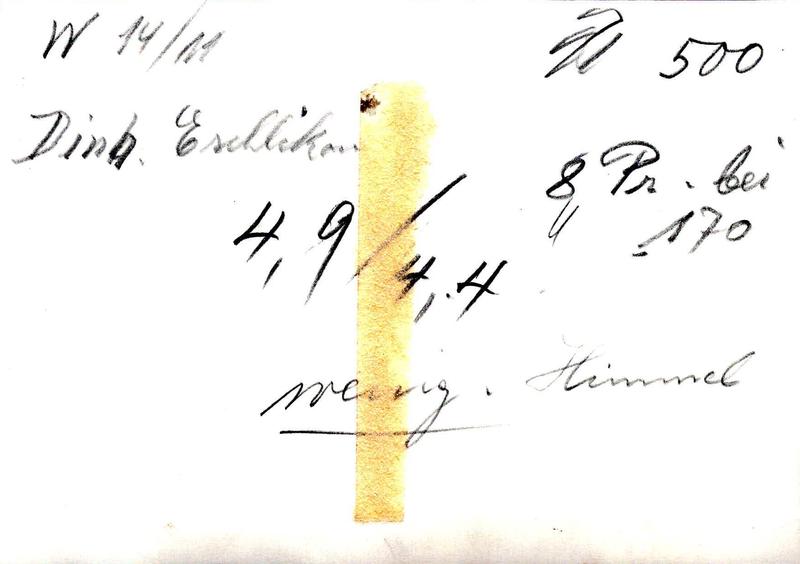 W 14/11
500
Dinh. Eschlikon
8 Pr. bei
" 170
4,9/4,4
wenig. Himmel